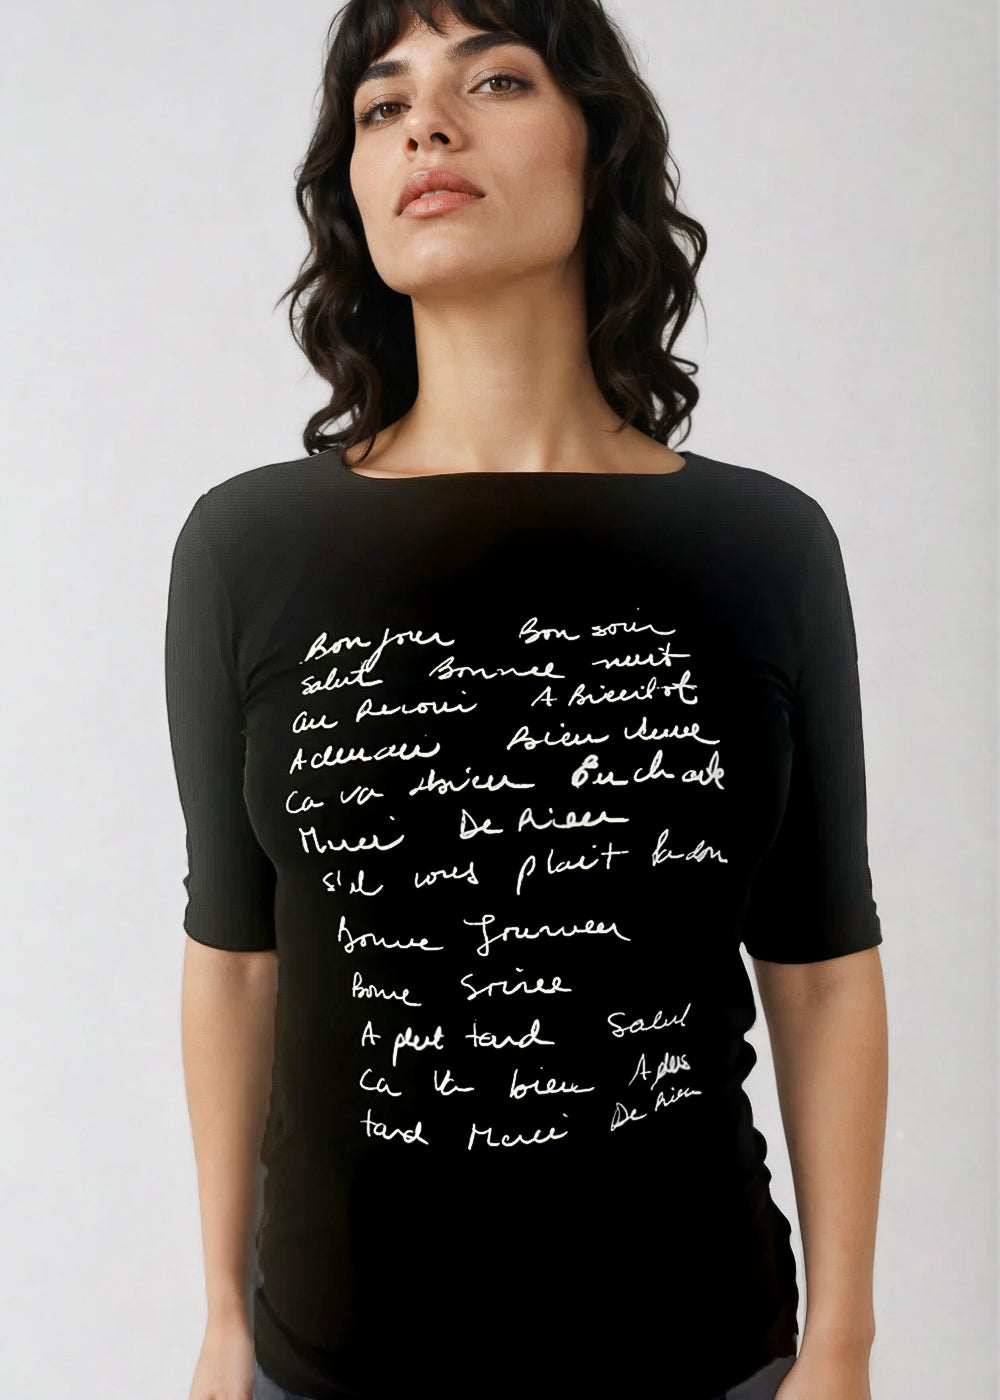 Bonjour Bon soir
Salut Bonnee nuit
au Revoir A Bientot
A demain Bien venue
Ca va bien Enchante
Merci De Rien
s'il vous plait Pardon
Bonne Journeer
Bonne Soiree
A plut tard Salut
Ca Va bien A plus
tard Merci De Rien